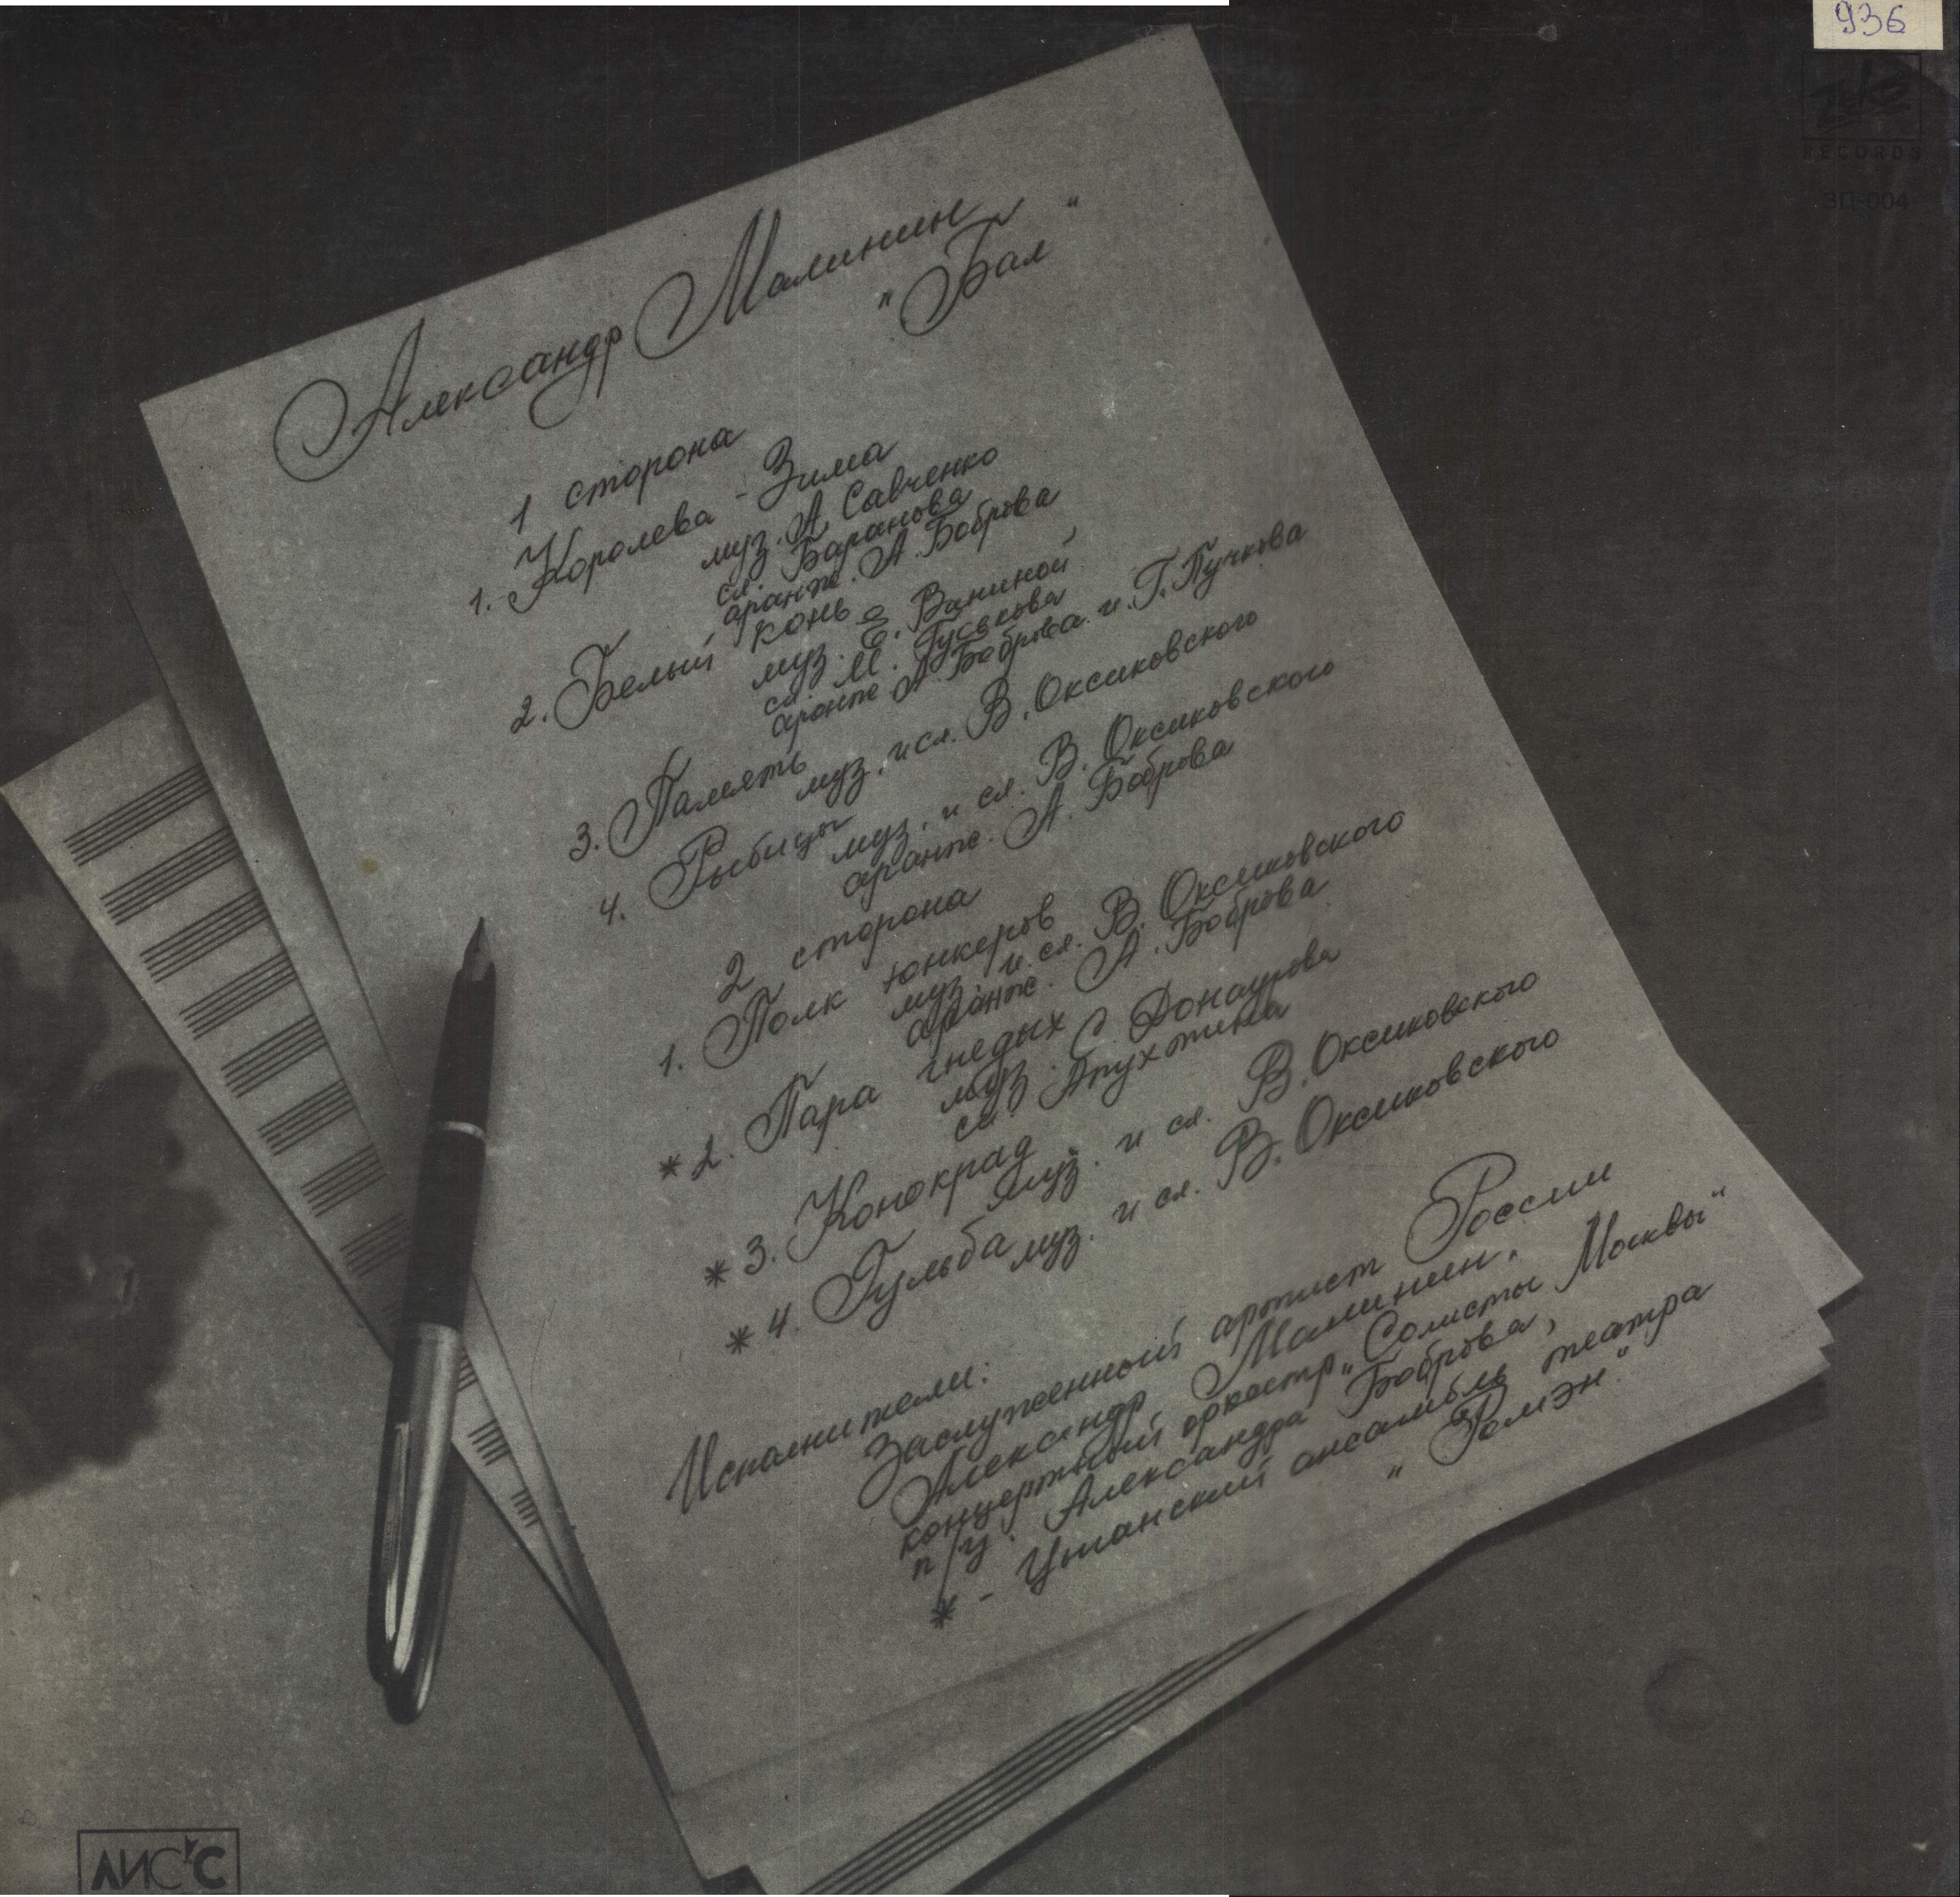 936
Zeke
RECORDS
ЗП-004
Александр Малинин
"Бал"
1 сторона
1. Королева-Зима
муз. А Савченко
сл. Баранова
аранж. А. Боброва
2. Белый конь
муз. Е. Ваниной
сл. М. Гуськова
аранж А. Боброва и Г. Пучкова
3. Память
муз. и сл. В. Оксиковского
4. Рыбицы
муз. и сл. В. Оксиковского
аранж. А. Боброва
2 сторона
1. Полк юнкеров
муз. и сл. В. Оксиковского
аранж. А. Боброва
* 2. Пара гнедых
муз. С Донаурова
сл. Апухтина
* 3. Конокрад
муз. и сл. В. Оксиковского
* 4. Гульба
муз. и сл. В. Оксиковского
Исполнители:
Заслуженный артист России
Александр Малинин.
концертный оркестр „Солисты Москвы"
п/у. Александра Боброва,
* - Цыганский ансамбль театра
„Ромэн."
ЛИС'С